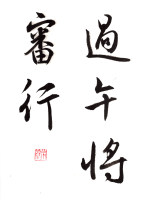 過午将
審行